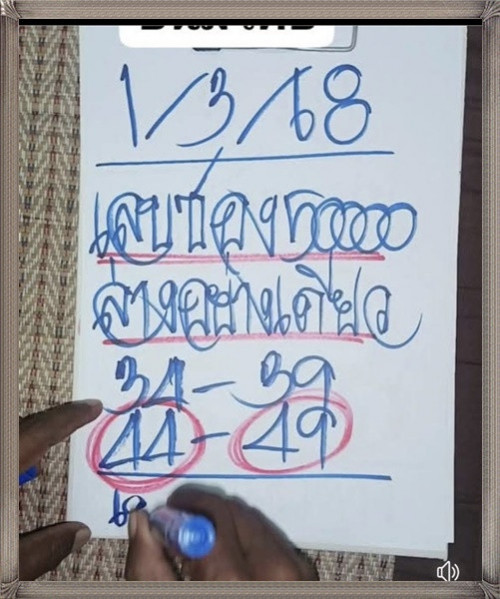 1/3/68
เลขท่อง50000
ล่างอย่างเดียว
34-39
44-49